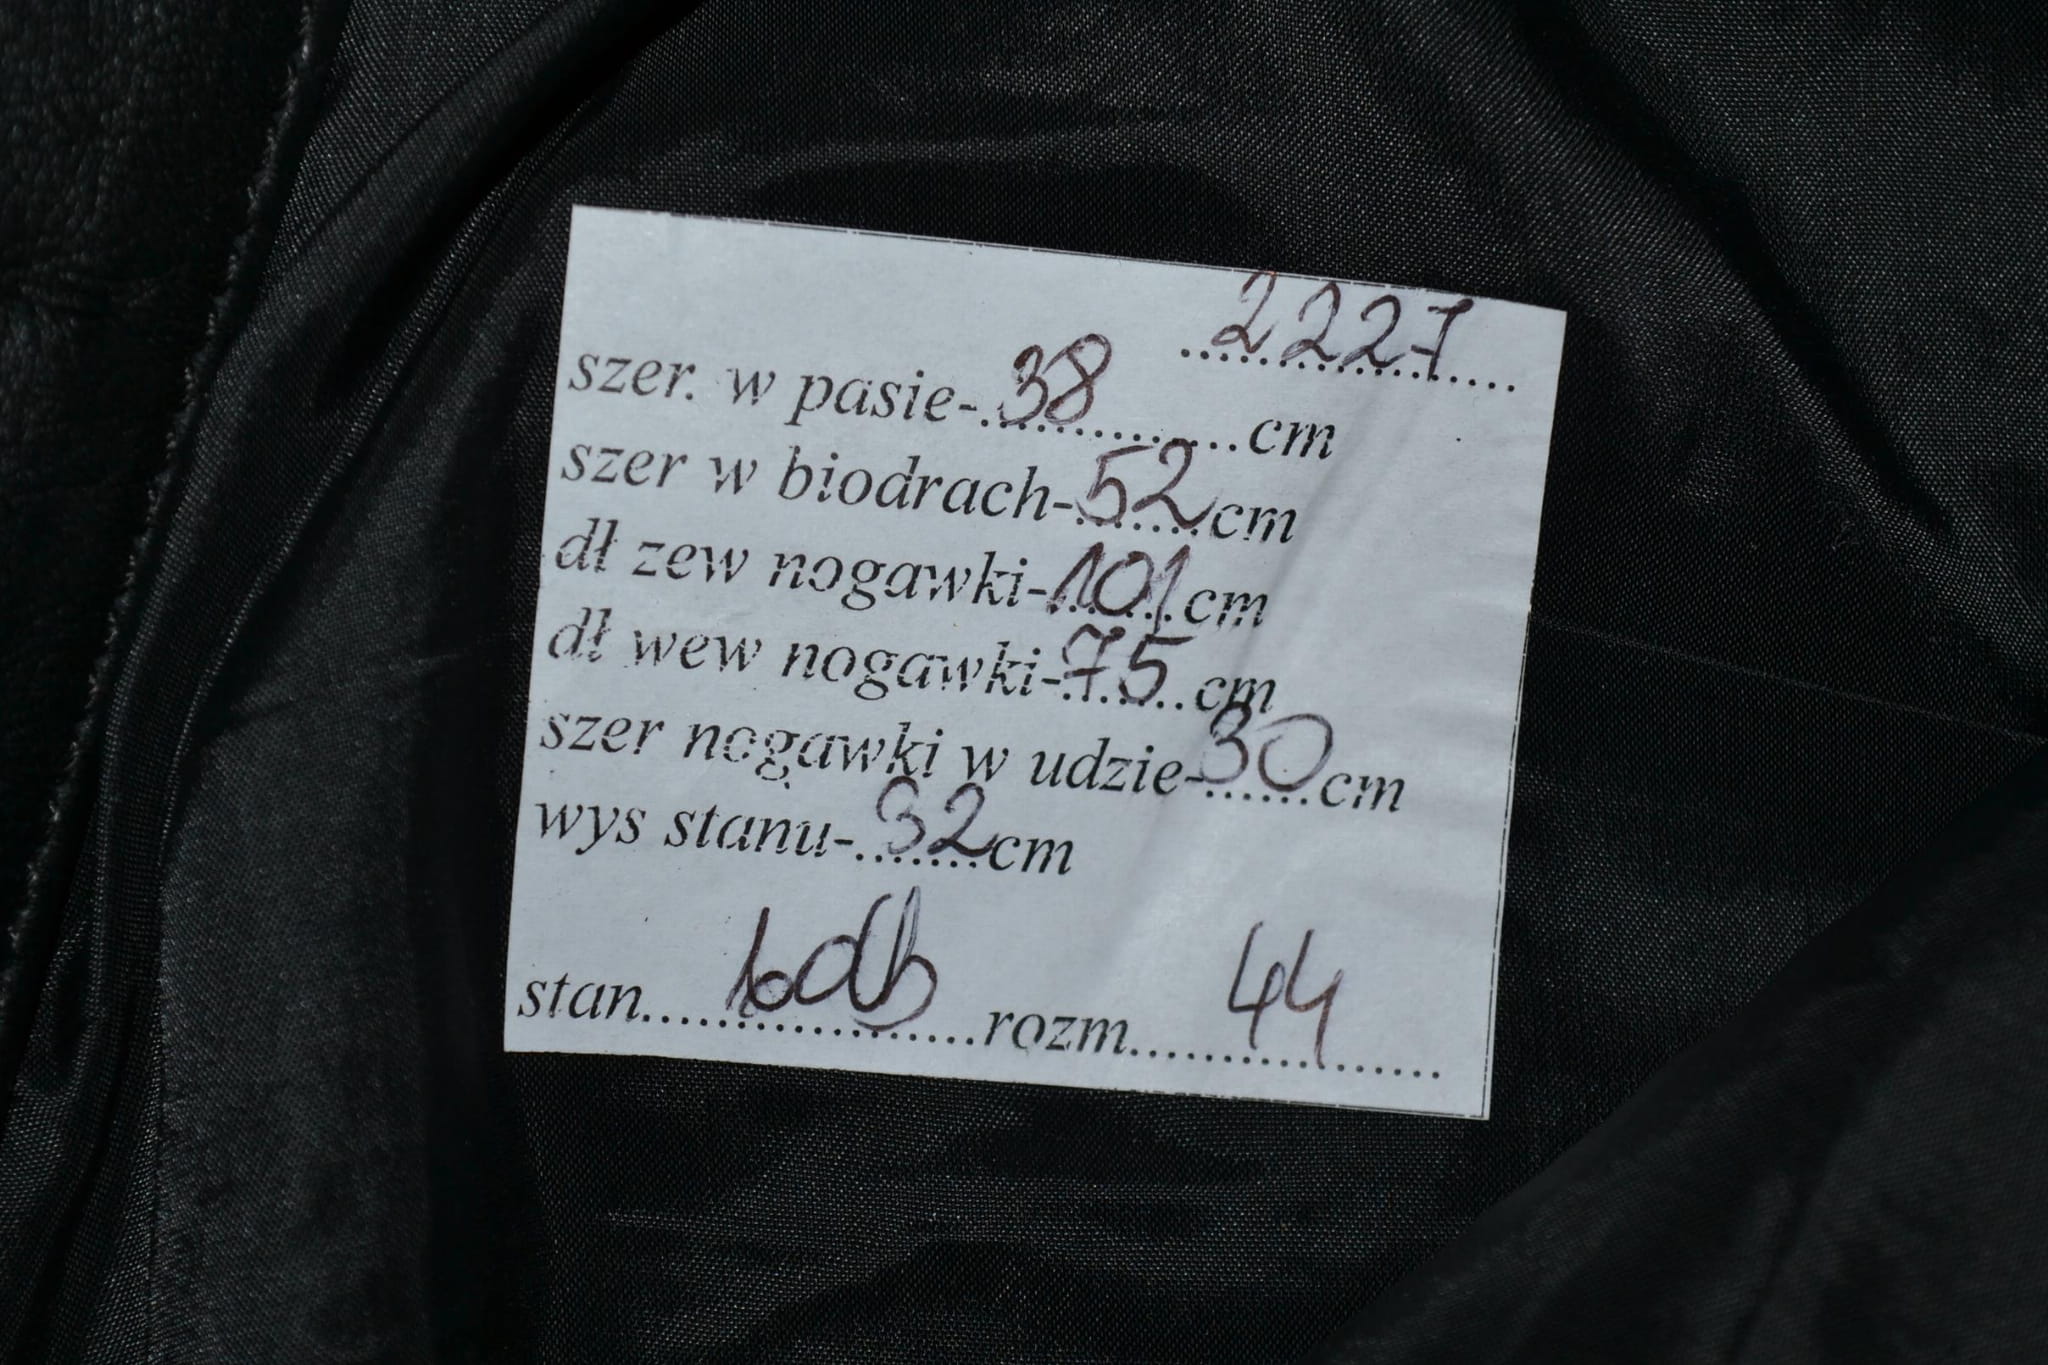 2227
szer. w pasie-.38............cm
szer w biodrach-.52.cm
dł zew nogawki-.101.cm
dł wew nogawki-.75..cm
szer nogawki w udzie-30cm
wys stanu-.32cm
stan.......bdb.......rozm.....44.....